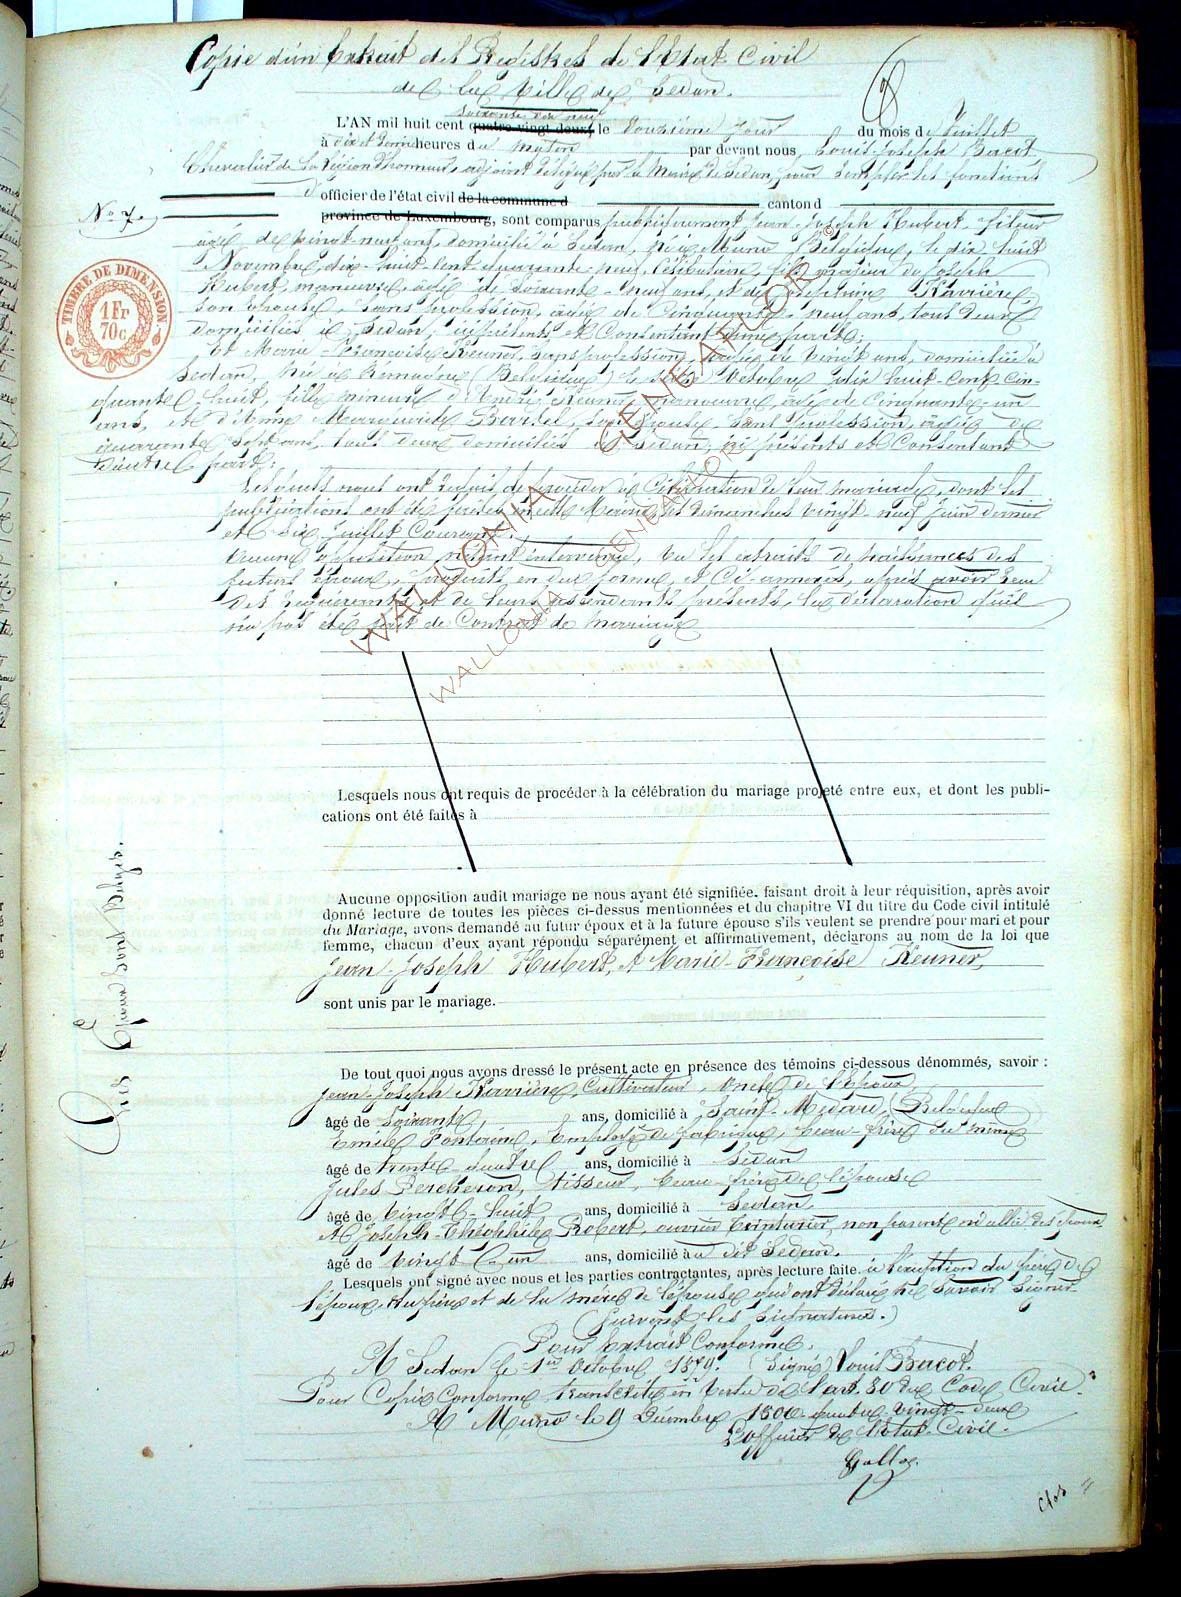 Copie d'un Extrait des Registres de l'Etat Civil
de la Ville de Sedan.
soixante dix neuf
L'AN mil huit cent quatre-vingt-deux, le Douzième jour du mois de Juillet
à dix et demie heures du matin par devant nous, Louis-Joseph Bacot
Chevalier de la Légion d'honneur, adjoint délégué par le Maire de Sedan, pour remplir les fonctions
d'officier de l'état civil de la commune d canton d
No 7.
province de Luxembourg, sont comparus publiquement Jean-Joseph Hubert, fileur
âgé de vingt-neuf ans, domicilié à Sedan, né à Muno, Belgique, le dix huit
Novembre dix-huit-cent quarante-neuf, Célibataire, fils majeur de Joseph
Hubert, manœuvre, âgé de soixante-neuf ans, et de Joséphine Harrière,
son épouse, sans profession, âgée de cinquante-neuf ans, tous deux
domiciliés à Sedan, ici présents et Consentant d'une part;
TIMBRE DE DIMENSION
1 Fr
70c
Et Marie-Françoise Keuner, sans profession, âgée de vingt ans, domiciliée à
Sedan, née à (Belgique) le Octobre dix huit-cent cin-
quante huit, fille mineure d'André Keuner, manœuvre, âgé de Cinquante-un
ans, et d'Anne Marguerite Bardel, son épouse, sans profession, âgée de
quarante sept ans, tous deux domiciliés à Sedan, ici présents et Consentant
d'autre part;
Lesquels nous ont requis de procéder à la Célébration de leur mariage, dont les
publications ont été faites en cette Mairie, les dimanches vingt-neuf Juin dernier
et six Juillet Courant.
Aucune opposition n'étant intervenue, vu les extraits de naissances des
futurs époux, produits en due forme, et Ci-annexés, après avoir reçu
des requérants et de leurs ascendants présents, la déclaration qu'il
n'a pas été fait de Contrat de mariage
WALLONIA GENEALOR
WALLONIA GENEALOR
Lesquels nous ont requis de procéder à la célébration du mariage projeté entre eux, et dont les publi-
cations ont été faites à
Les Epoux sont Belges.
Aucune opposition audit mariage ne nous ayant été signifiée, faisant droit à leur réquisition, après avoir
donné lecture de toutes les pièces ci-dessus mentionnées et du chapitre VI du titre du Code civil intitulé
du Mariage, avons demandé au futur époux et à la future épouse s'ils veulent se prendre pour mari et pour
femme, chacun d'eux ayant répondu séparément et affirmativement, déclarons au nom de la loi que
Jean-Joseph Hubert, et Marie-Françoise Keuner,
sont unis par le mariage.
De tout quoi nous avons dressé le présent acte en présence des témoins ci-dessous dénommés, savoir :
Jean-Joseph Harrière, Cultivateur, oncle de l'époux,
âgé de soixante, ans, domicilié à Saint-Médard, (Belgique
Emile Fontaine, employé de fabrique, beau-frère du même
âgé de trente-quatre ans, domicilié à Sedan
Jules Percheron, tisseur, beau-frère de l'épouse
âgé de vingt-huit ans, domicilié à Sedan.
et Joseph-Théophile Robert, ouvrier teinturier, non parent ni allié des époux
âgé de vingt-un ans, domicilié à u dit Sedan.
Lesquels ont signé avec nous et les parties contractantes, après lecture faite. à l'exception du père de
l'époux, du père et de la mère de l'épouse qui ont déclaré ne savoir signer
(Suivent les signatures.)
Pour Extrait Conforme.
A Sedan le 1er Octobre 1879. (Signé) Louis Bacot.
Pour Copie Conforme transcrite en vertu de l'art. 80 du Code Civil.
A Muno le 9 Décembre 1800-quatre-vingt-deux
L'officier de l'état-Civil.